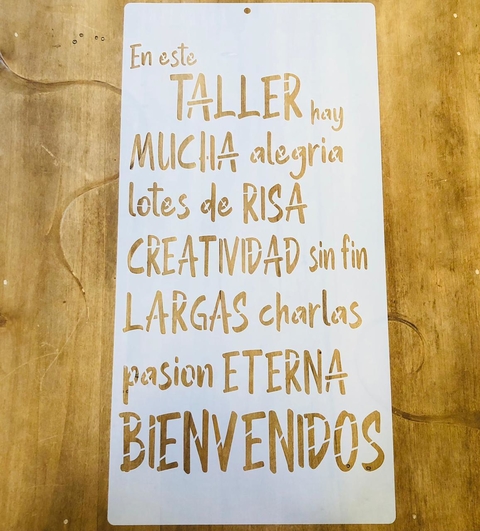 En este
TALLER hay
MUCHA alegria
lotes de RISA
CREATIVIDAD sin fin
LARGAS charlas
pasion ETERNA
BIENVENIDOS